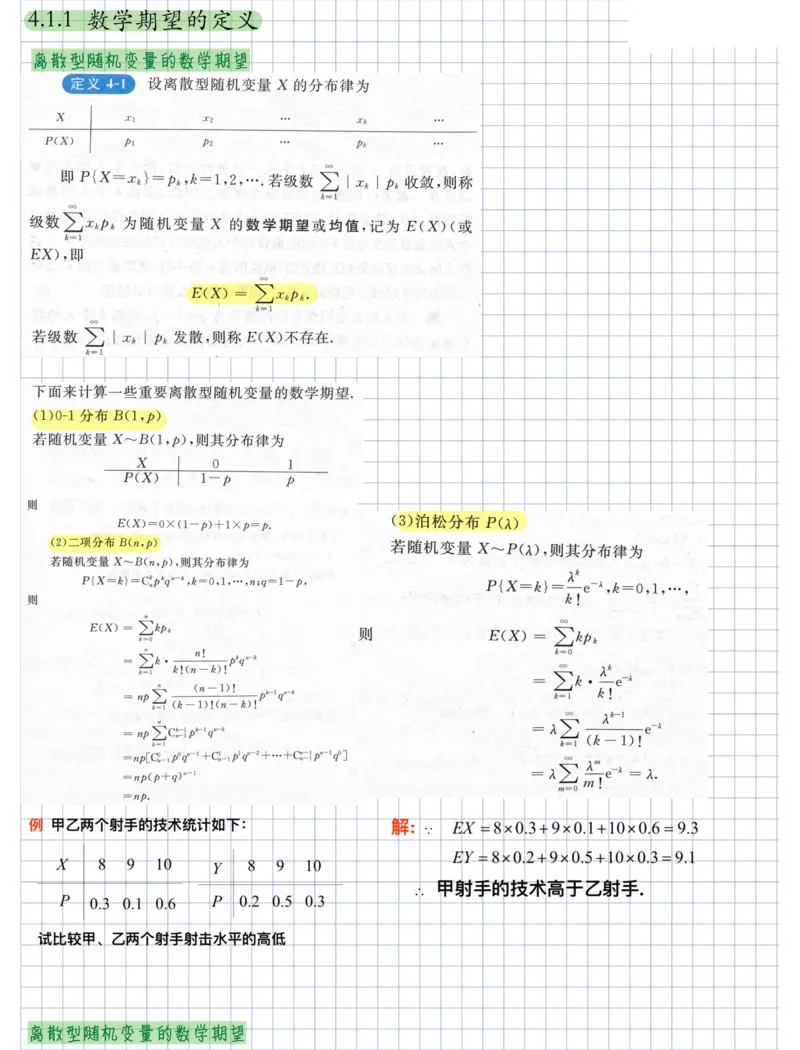 4.1.1 数学期望的定义
离散型随机变量的数学期望
定义 4-1 设离散型随机变量 X 的分布律为
X x₁ x₂ … xₖ …
P(X) p₁ p₂ … pₖ …
即 P{X=xₖ}=pₖ,k=1,2,….若级数 ∑_{k=1}^{∞} |xₖ|pₖ 收敛,则称
级数 ∑_{k=1}^{∞} xₖpₖ 为随机变量 X 的数学期望或均值,记为 E(X)(或
EX),即
E(X) = ∑_{k=1}^{∞} xₖpₖ.
若级数 ∑_{k=1}^{∞} |xₖ|pₖ 发散,则称 E(X)不存在.
下面来计算一些重要离散型随机变量的数学期望.
(1)0-1 分布 B(1,p)
若随机变量 X~B(1,p),则其分布律为
X 0 1
P(X) 1-p p
则
E(X)=0×(1-p)+1×p=p.
(2)二项分布 B(n,p)
若随机变量 X~B(n,p),则其分布律为
P{X=k}=C_n^k p^k q^{n-k},k=0,1,…,n;q=1-p,
则
E(X) = ∑_{k=0}^{n} kpₖ
= ∑_{k=1}^{n} k · n!/(k!(n-k)!) p^k q^{n-k}
= np ∑_{k=1}^{n} (n-1)!/((k-1)!(n-k)!) p^{k-1} q^{n-k}
= np ∑_{k=1}^{n} C_{n-1}^{k-1} p^{k-1} q^{n-k}
=np[C_{n-1}^0 p^0 q^{n-1}+C_{n-1}^1 p^1 q^{n-2}+…+C_{n-1}^{n-1} p^{n-1} q^0]
=np(p+q)^{n-1}
=np.
(3)泊松分布 P(λ)
若随机变量 X~P(λ),则其分布律为
P{X=k}= λ^k/k! e^{-λ},k=0,1,…,
则 E(X) = ∑_{k=0}^{∞} kpₖ
= ∑_{k=1}^{∞} k · λ^k/k! e^{-λ}
= λ ∑_{k=1}^{∞} λ^{k-1}/(k-1)! e^{-λ}
= λ ∑_{m=0}^{∞} λ^m/m! e^{-λ} = λ.
例 甲乙两个射手的技术统计如下：
X 8 9 10
P 0.3 0.1 0.6
Y 8 9 10
P 0.2 0.5 0.3
试比较甲、乙两个射手射击水平的高低
解: ∵ EX = 8×0.3+9×0.1+10×0.6 = 9.3
EY = 8×0.2+9×0.5+10×0.3 = 9.1
∴ 甲射手的技术高于乙射手.
离散型随机变量的数学期望